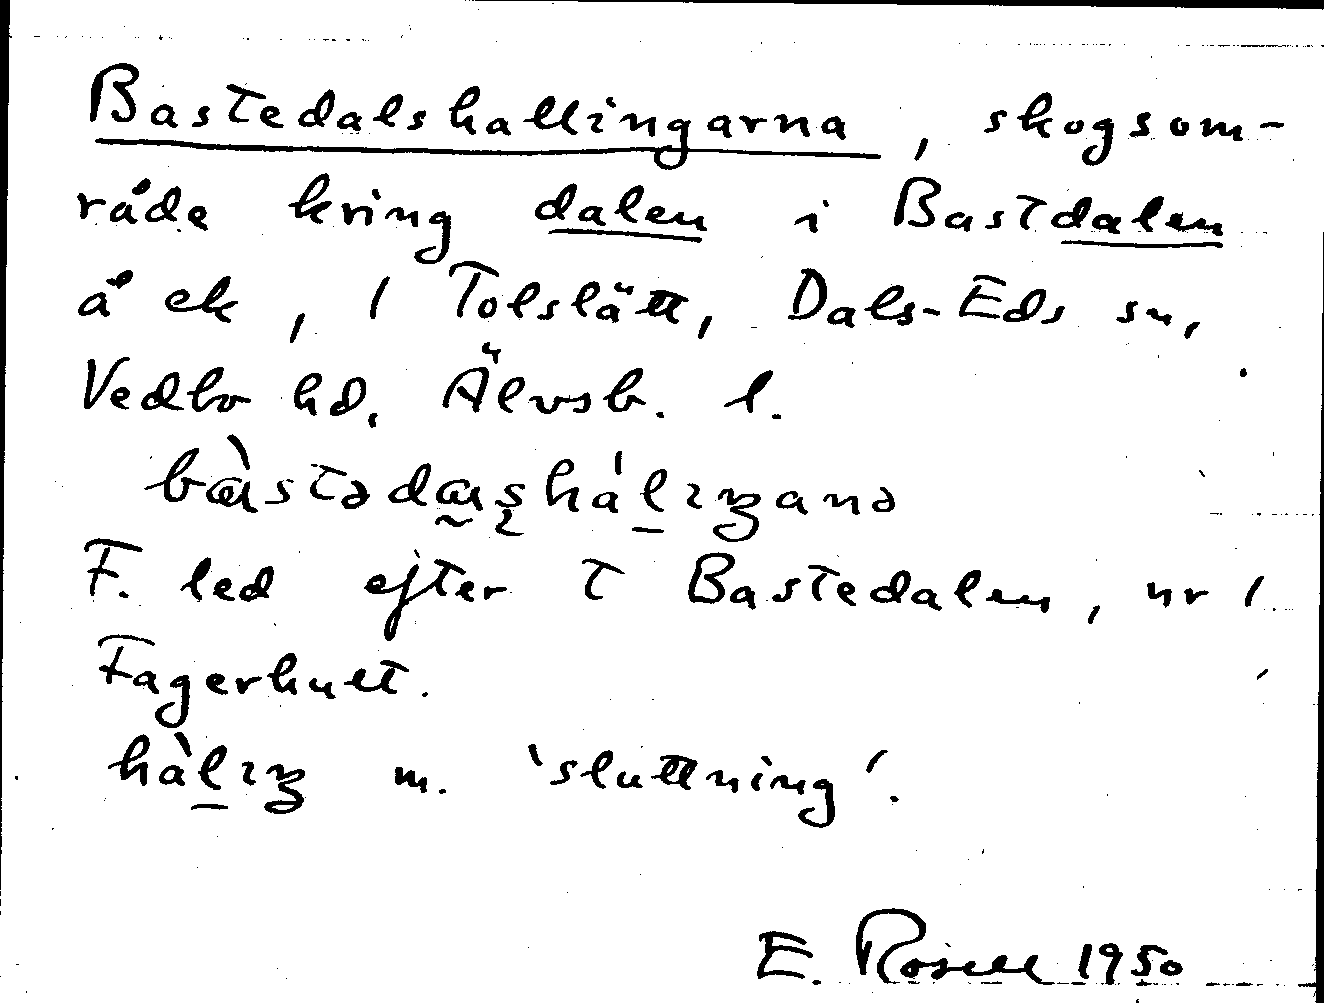 Bastedalshallingarna, skogsom-
råde kring dalen i Bastdalen
å ek, 1 Tolslätt, Dals-Eds sn,
Vedbo hd, Älvsb. l.
bàstədaʂhálıŋanə
F. led efter T Bastedalen, nr 1
Fagerhult.
hàlıŋ m. 'sluttning'.
E. Rosell 1950